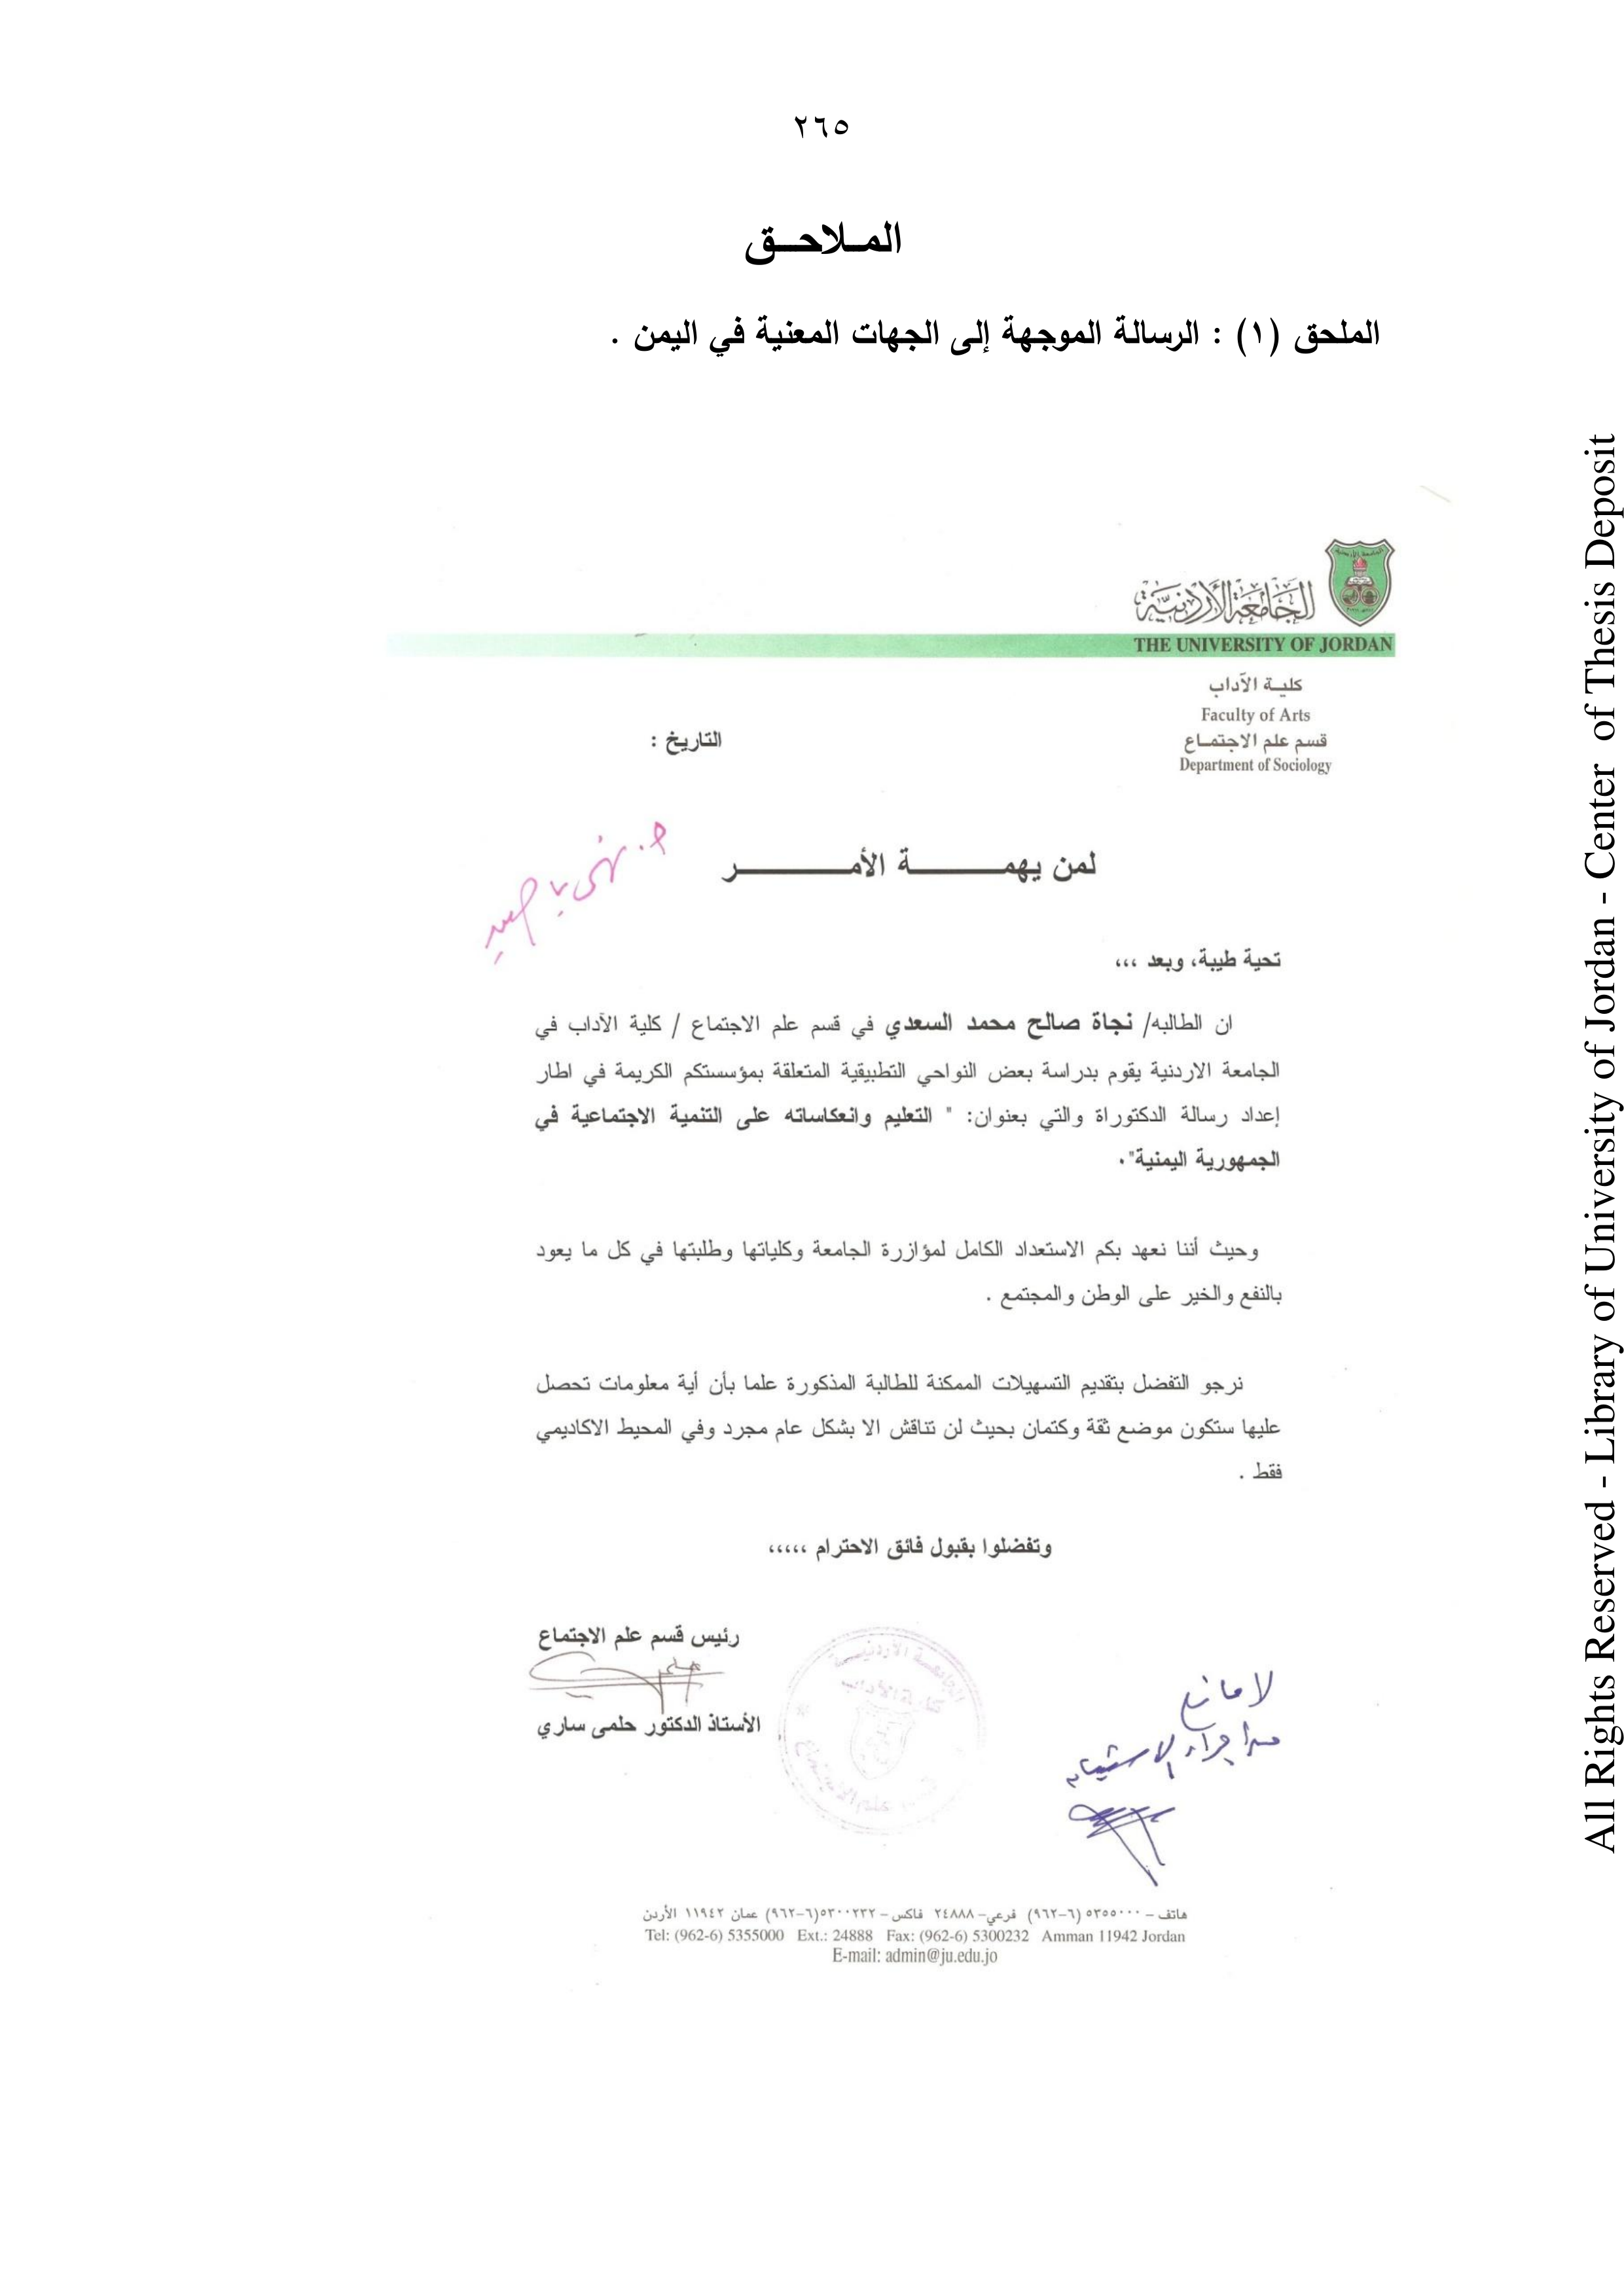 ٢٦٥
الملاحق
الملحق (١) : الرسالة الموجهة إلى الجهات المعنية في اليمن .
الجامعة الأردنية
THE UNIVERSITY OF JORDAN
كلية الآداب
Faculty of Arts
قسم علم الاجتماع
Department of Sociology
التاريخ :
لمن يهمة الأمر
تحية طيبة، وبعد ،،،
ان الطالبه/ نجاة صالح محمد السعدي في قسم علم الاجتماع / كلية الآداب في
الجامعة الاردنية يقوم بدراسة بعض النواحي التطبيقية المتعلقة بمؤسستكم الكريمة في اطار
إعداد رسالة الدكتوراة والتي بعنوان: " التعليم وانعكاساته على التنمية الاجتماعية في
الجمهورية اليمنية"٠
وحيث أننا نعهد بكم الاستعداد الكامل لمؤازرة الجامعة وكلياتها وطلبتها في كل ما يعود
بالنفع والخير على الوطن والمجتمع .
نرجو التفضل بتقديم التسهيلات الممكنة للطالبة المذكورة علما بأن أية معلومات تحصل
عليها ستكون موضع ثقة وكتمان بحيث لن تناقش الا بشكل عام مجرد وفي المحيط الاكاديمي
فقط .
وتفضلوا بقبول فائق الاحترام ،،،،،
رئيس قسم علم الاجتماع
الأستاذ الدكتور حلمي ساري
الجامعة الأردنية
كلية الآداب
علم الاجتماع
لا مانع
من اجراء الاستبيان
هاتف – ٥٣٥٥٠٠٠ (٦–٩٦٢) فرعي– ٢٤٨٨٨ فاكس – ٥٣٠٠٢٣٢(٦–٩٦٢) عمان ١١٩٤٢ الأردن
Tel: (962-6) 5355000 Ext.: 24888 Fax: (962-6) 5300232 Amman 11942 Jordan
E-mail: admin@ju.edu.jo
All Rights Reserved - Library of University of Jordan - Center of Thesis Deposit